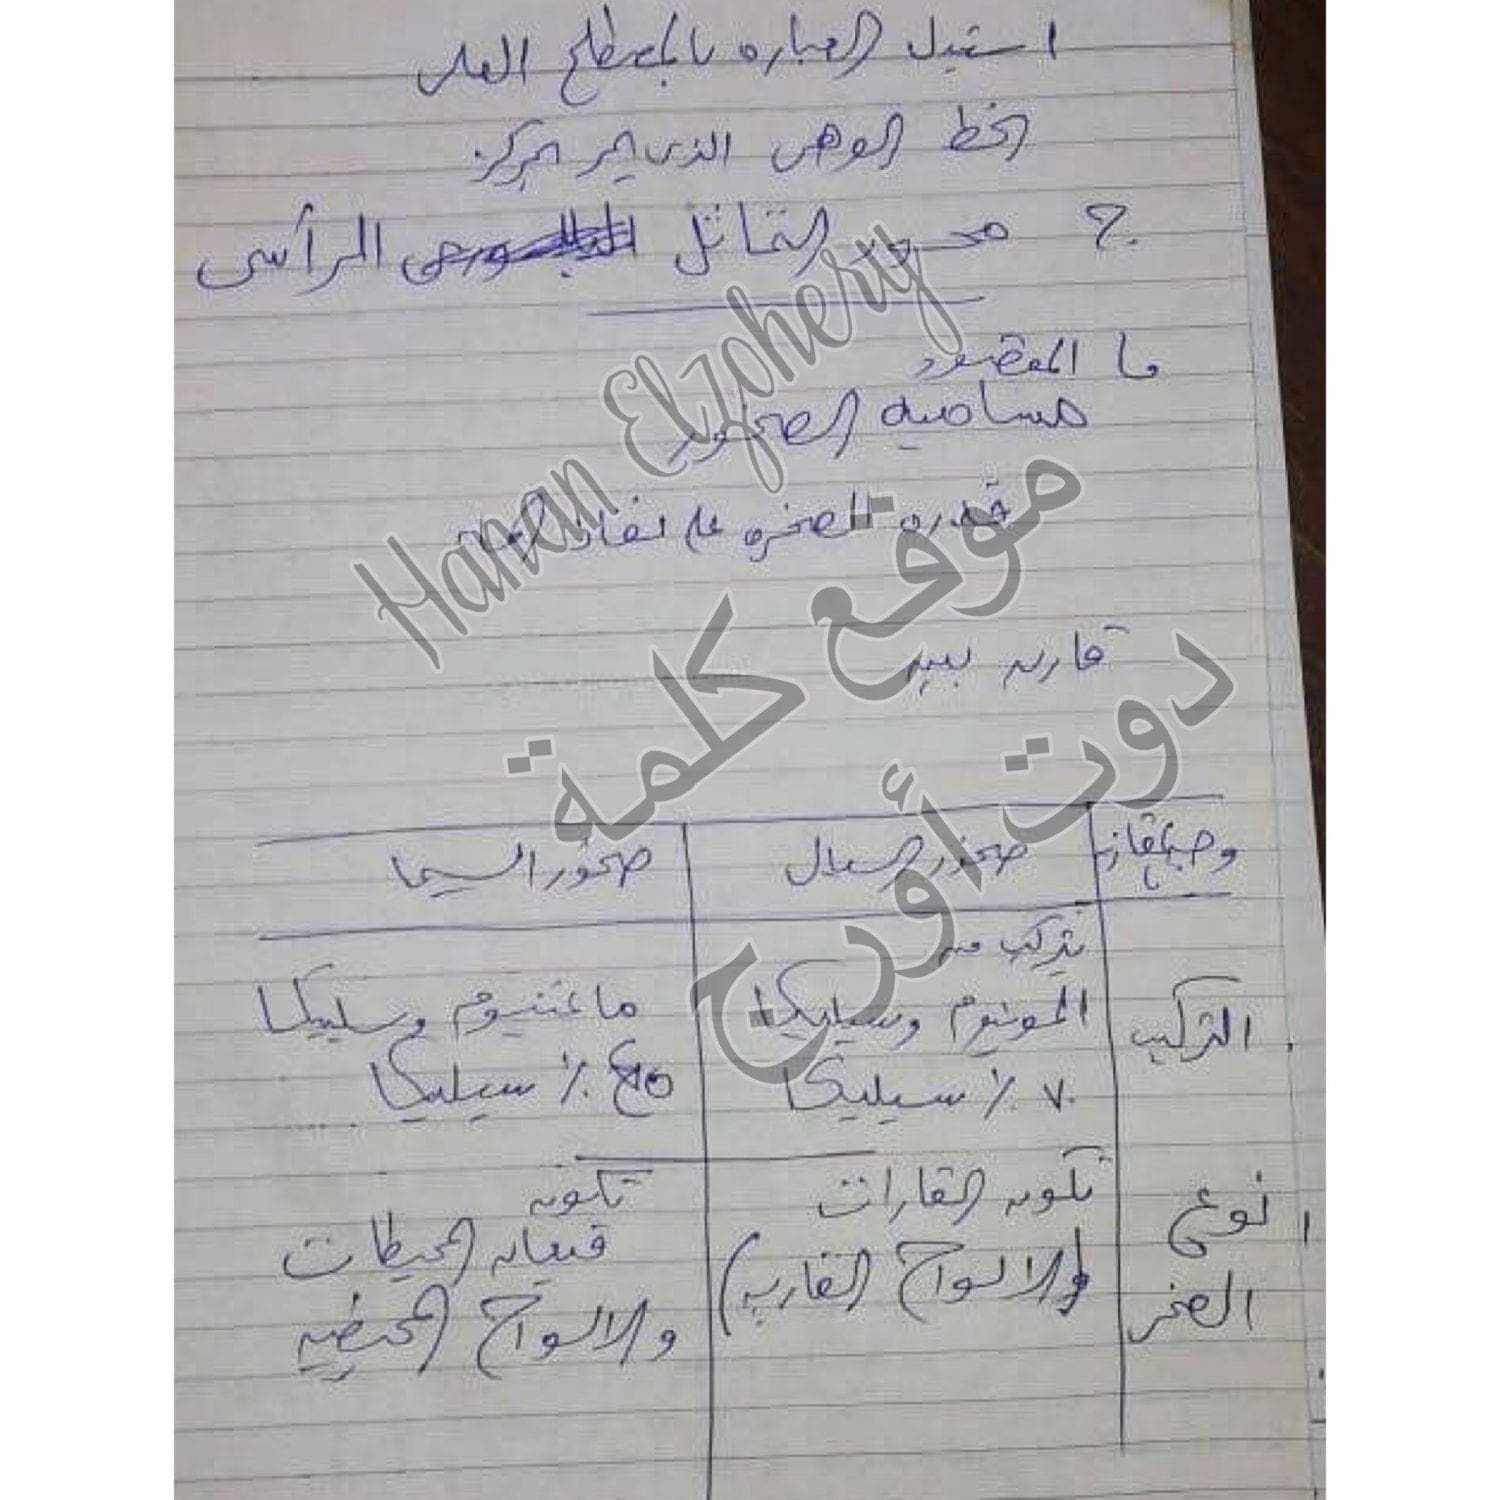 استبدل العباره بالمصطلح العلمى
الخط الوهمى الذى يمر بمركز
ج محور التماثل الرأسى
ما المقصود
مسامية الصخور
قدره الصخره على نفاذ
قارن بين
وجه المقارنه صخور السيال صخور السيما
التركيب
يتركب من
المونيوم وسيليكا
٧٠٪ سيليكا
ماغنسيوم وسليكا
٤٥٪ سيليكا
نوعى
الصخر
تكون القارات
والالواح القاريه)
تكون
قيعان المحيطات
والالواح المحيطيه
Hanan Elzohery
موقع كلمة
دوت أورج